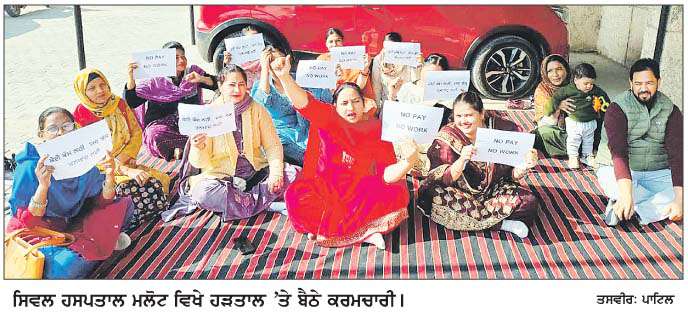 NO PAY
NO WORK
NO PAY
NO WORK
NO PAY
NO WORK
NO PAY
NO WORK
NO PAY
NO WORK
ਸਿਵਲ ਹਸਪਤਾਲ ਮਲੋਟ ਵਿਖੇ ਹੜਤਾਲ 'ਤੇ ਬੈਠੇ ਕਰਮਚਾਰੀ।
ਤਸਵੀਰ: ਪਾਟਿਲ